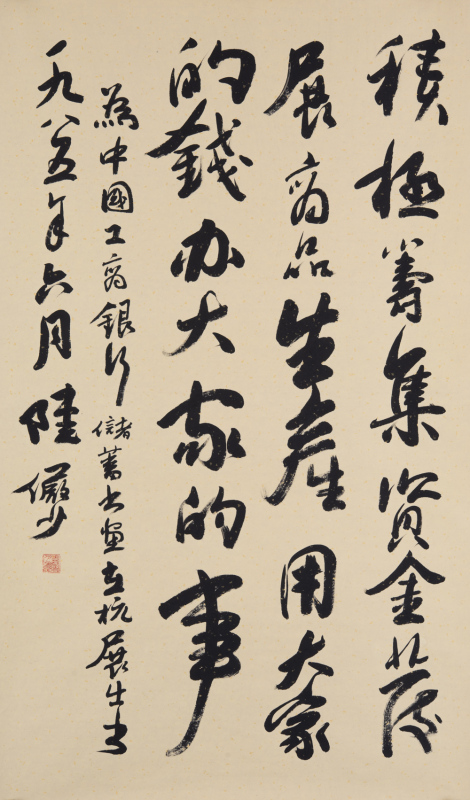 積極籌集資金發
展商品生產用大家
的錢办大家的事
為中國工商銀行儲蓄書畫在杭展出書
一九八五年六月陸儼少